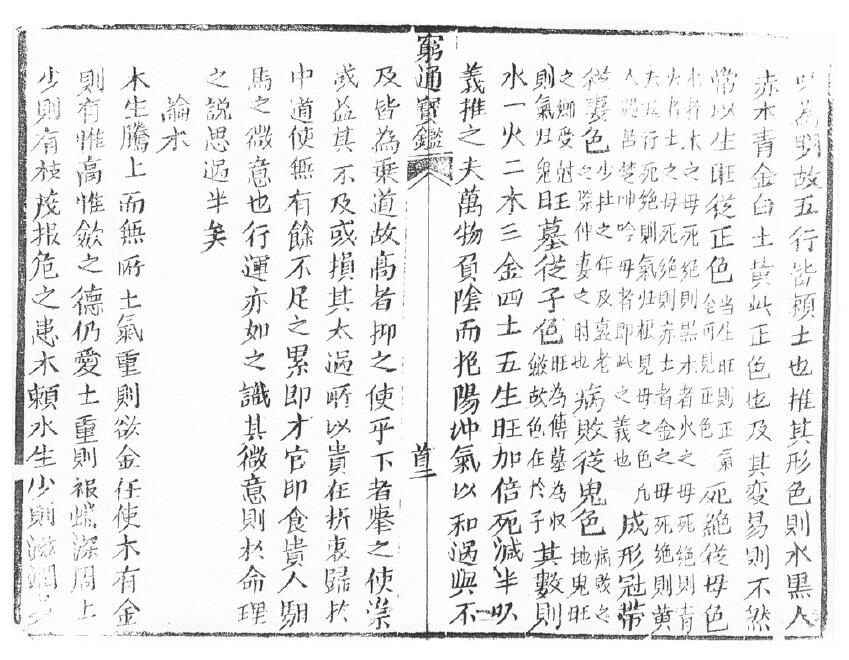 以為明故五行皆賴土也推其形色則水黑火
赤木青金白土黄此正色也及其变易則不然
常以生旺從正色 死絶從母色
當生旺則正氣
全可見正色
水者木之母死絶則黑木者火之母死絶則青
火者土之母死絶則赤土者金之母死絶則黄
夫五行死絶則氣归根見母之色凡
人遇苦楚呻吟母者即此之義也
成形冠带
從妻色
少壮之年及衰老
之際仲妻之時也
病敗從鬼色
病敗之
地鬼旺
之鄉受尅
則氣归鬼
旺墓從子色
旺為傳墓為収
斂故色在於子
其數則
水一火二木三金四土五生旺加倍死減半以
義推之夫萬物負陰而抱陽冲氣以和過與不
窮通寶鑑
首二
及皆為乗道故高者抑之使平下者舉之使崇
或益其不及或損其太過所以貴在折衷歸於
中道使無有餘不足之累即才官印食貴人馹
馬之微意也行運亦如之識其微意則於命理
之説思過半矣
論木
木生騰上而無所止氣重則欲金任使木有金
則有惟高惟斂之德仍愛土重則根蟠深固土
少則有枝茂根危之患木賴水生少則滋潤多